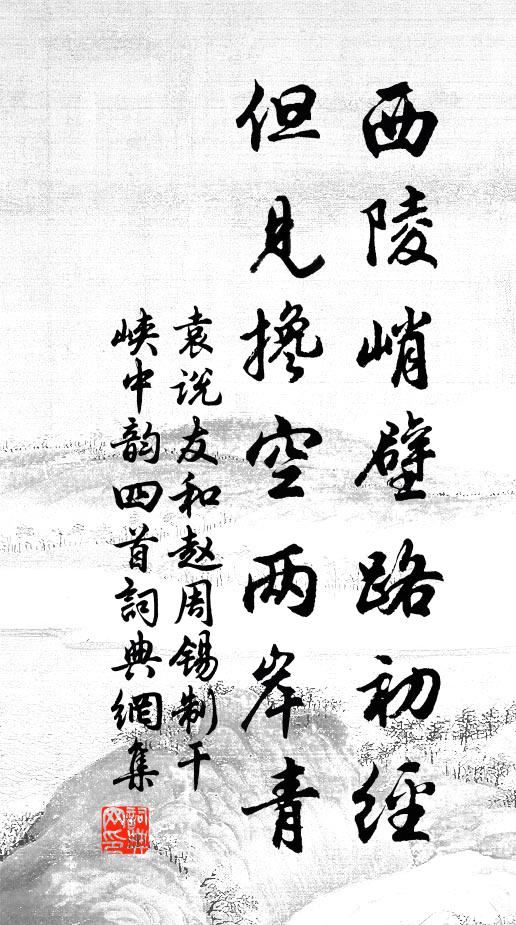 西陵峭壁路初經
但見搀空两岸青
袁说友和赵周锡制干
峡中韵四首詞典網集